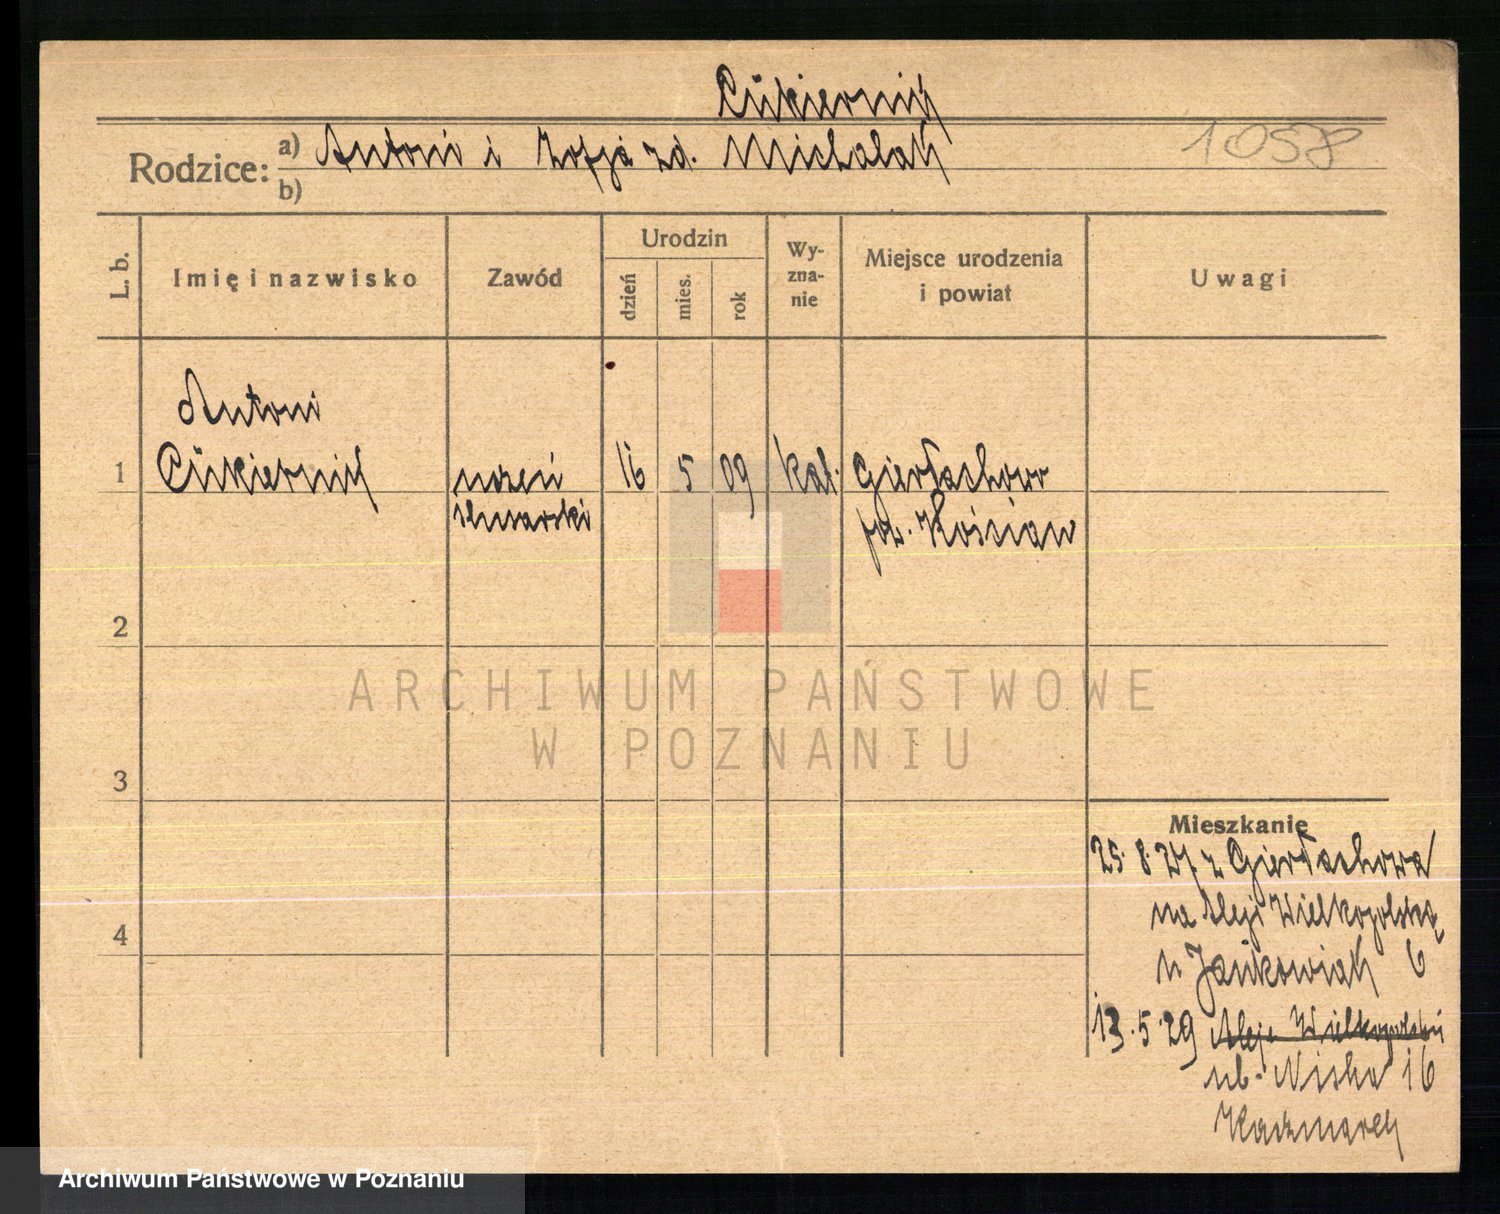 Cukiernik
Rodzice: a) Antoni i Zofja zd. Michalak
b)
1058
L. b.
Imię i nazwisko
Zawód
Urodzin
dzień
mies.
rok
Wy-
zna-
nie
Miejsce urodzenia
i powiat
Uwagi
Antoni
1 Cukiernik uczeń 16 5 09 kat. Gierłachowo
ślusarski pow. Kościan
2
3
4
ARCHIWUM PAŃSTWOWE
W POZNANIU
Mieszkanie
25.8.27 z Gierłachowa
na Aleje Wielkopolską
u Jankowiak 6
13.5.29 Aleje Wielkopolski
ul. 16
Kaczmarek
Archiwum Państwowe w Poznaniu